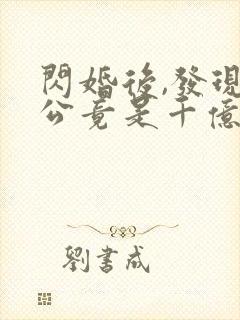 閃婚後,發現
公竟是千億
劉書成